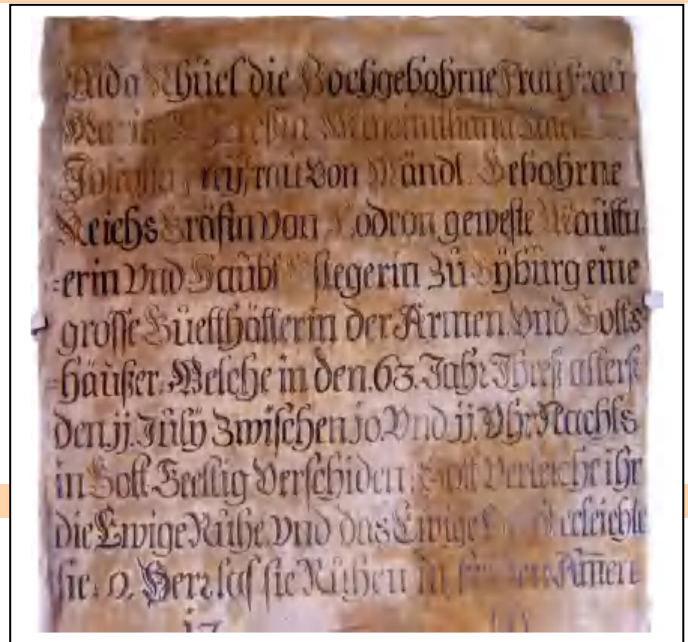 Alda Rhüel die Hochgebohrne Frau Frau
Maria Theresia Maximiliana
Josepha Freyfrau Von Mändl Gebohrne
Reichs Gräfin Von Lodron geweste
=erin Vnd Haubt Pflegerin Zü Rÿbürg eine
grosse Güetthätterin der Armen Vnd Gotts
=häüßer. Welche in den. 63. Jahr Ihreß alterß
den. jj. Jülÿ Zwischen jo. Vnd jj. Vhr Nachts
in Gott Seellig Verschiden, Gott Verleiche ihr
die Ewige Rühe, Vnd das Ewige Liecht erleichte
sie. O. Herr laß sie Rühen in friden Amen
17